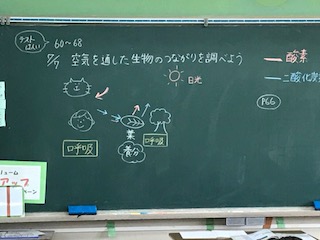 テスト
はんい
60~68
空気を通した生物のつながりを調べよう
酸素
日光
二酸化炭
P66
葉
養分
口呼吸
口呼吸
アップ